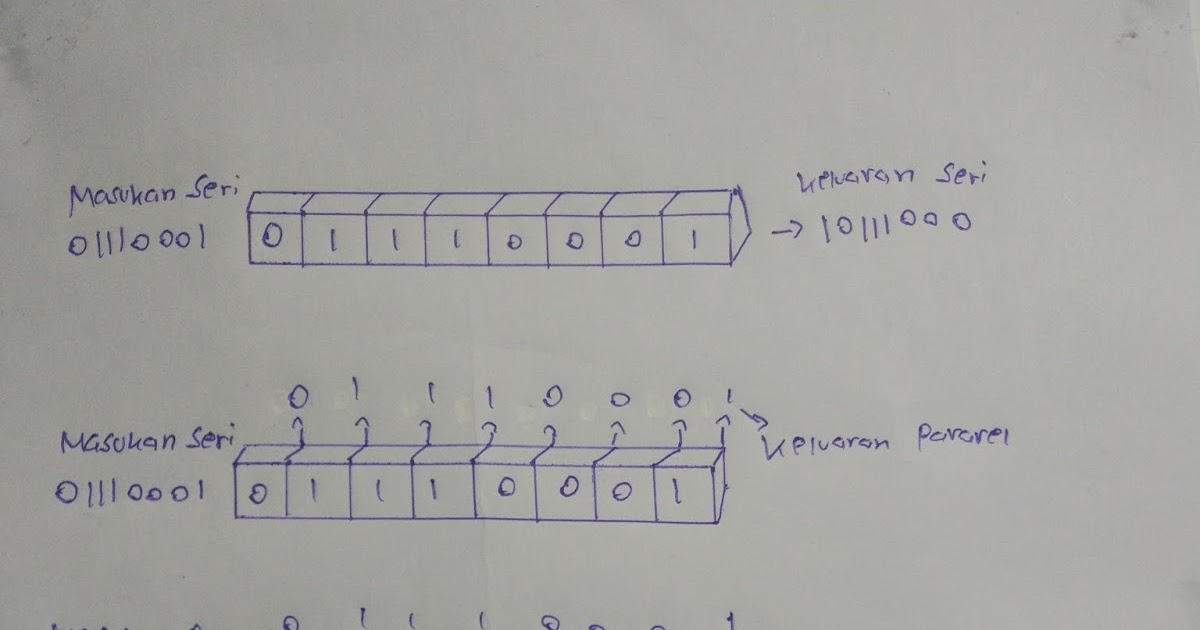 Masukan Seri
Keluaran Seri
01110001
0 1 1 1 0 0 0 1
→ 10111000
0 1 1 1 0 0 0 1
Masukan Seri
Keluaran Pararel
01110001
0 1 1 1 0 0 0 1
0 1 1 1 0 0 0 1